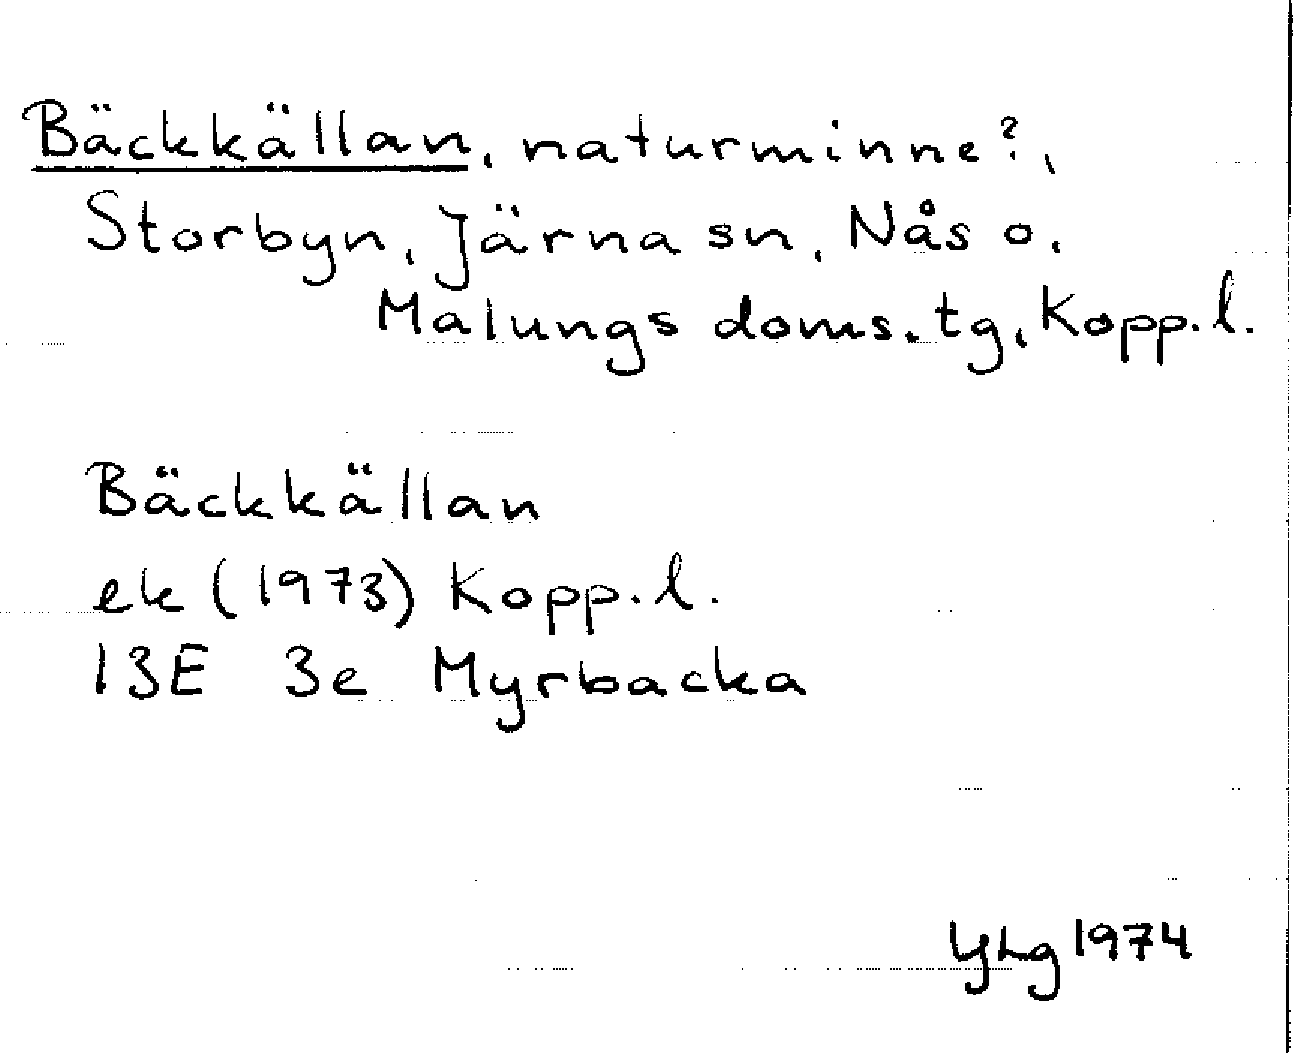 Bäckkällan, naturminne?,
Storbyn, Järna sn, Nås o.
Malungs doms.tg, Kopp.l.
Bäckkällan
ek (1973) Kopp.l.
13E 3e Myrbacka
YLg 1974